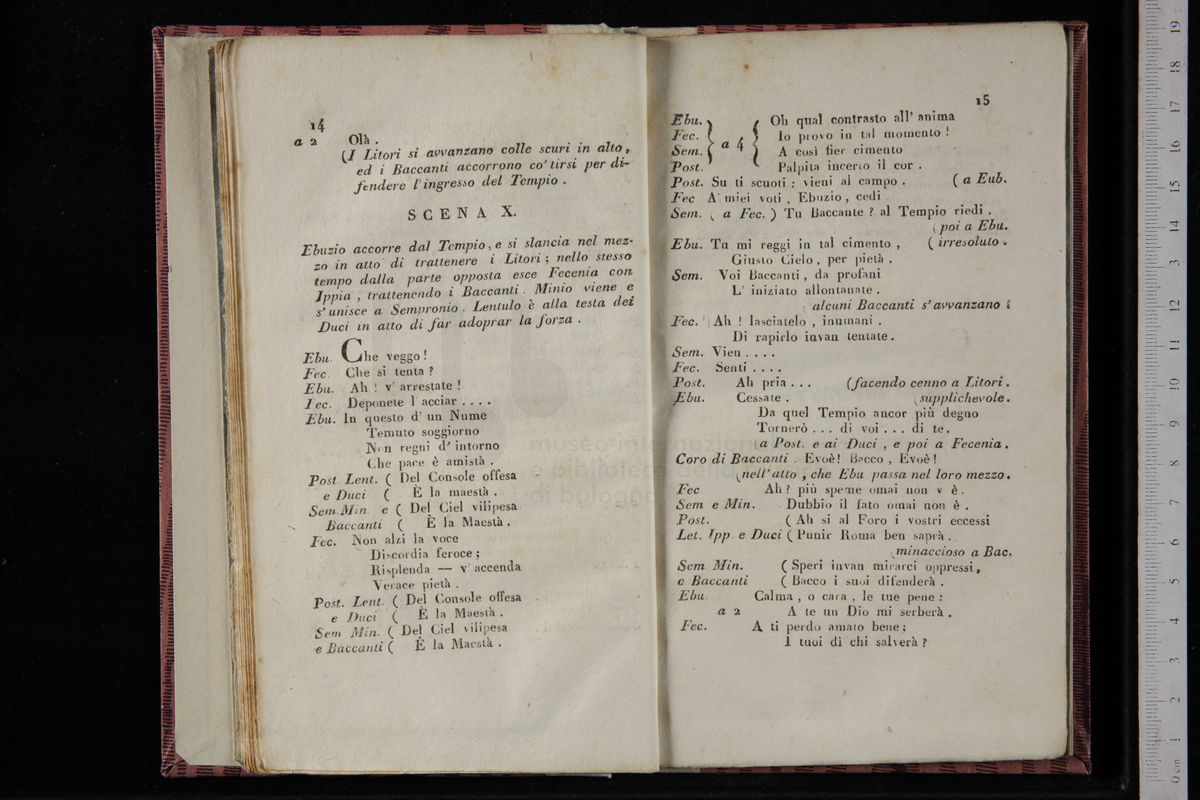 14
a 2 Olà .
(I Litori si avvanzano colle scuri in alto,
ed i Baccanti accorrono co' tirsi per di-
fendere l'ingresso del Tempio .
SCENA X.
Ebuzio accorre dal Tempio, e si slancia nel mez-
zo in atto di trattenere i Litori ; nello stesso
tempo dalla parte opposta esce Fecenia con
Ippia , trattenendo i Baccanti . Minio viene e
s'unisce a Sempronio . Lentulo è alla testa dei
Duci in atto di far adoprar la forza .
Ebu. Che veggo !
Fec. Che si tenta ?
Ebu. Ah ! v' arrestate !
Fec. Deponete l' acciar . . . .
Ebu. In questo d' un Nume
Temuto soggiorno
Non regni d' intorno
Che pace è amistà .
Post. Lent. ( Del Console offesa
e Duci ( È la maestà .
Sem. Min. e ( Del Ciel vilipesa
Baccanti ( È la Maestà .
Fec. Non alzi la voce
Discordia feroce ;
Risplenda — v' accenda
Verace pietà .
Post. Lent. ( Del Console offesa
e Duci ( È la Maestà .
Sem Min. ( Del Ciel vilipesa
e Baccanti ( È la Maestà .
15
Ebu. Oh qual contrasto all' anima
Fec. Io provo in tal momento !
Sem. a 4 A così fier cimento
Post. Palpita incerto il cor .
Post. Su ti scuoti : vieni al campo . ( a Eub.
Fec A' miei voti , Ebuzio , cedi
Sem. ( a Fec. ) Tu Baccante ? al Tempio riedi .
( poi a Ebu.
Ebu. Tu mi reggi in tal cimento , ( irresoluto .
Giusto Cielo , per pietà .
Sem. Voi Baccanti , da profani
L' iniziato allontanate .
( alcuni Baccanti s'avvanzano
Fec. Ah ! lasciatelo , inumani .
Di rapirlo invan tentate .
Sem. Vien . . . .
Fec. Senti . . . .
Post. Ah pria . . . (facendo cenno a Litori .
Ebu. Cessate . (supplichevole .
Da quel Tempio ancor più degno
Tornerò . . . di voi . . . di te .
(a Post. e ai Duci , e poi a Fecenia .
Coro di Baccanti . Evoè! Bacco , Evoè!
(nell' atto , che Ebu passa nel loro mezzo .
Fec Ah ? più speme omai non v è .
Sem e Min. Dubbio il fato omai non è .
Post. ( Ah si al Foro i vostri eccessi
Let. Ipp. e Duci ( Punir Roma ben saprà .
(minaccioso a Bac.
Sem Min. ( Speri invan mirarci oppressi ,
e Baccanti ( Bacco i suoi difenderà .
Ebu. Calma , o cara , le tue pene :
a 2 A te un Dio mi serberà .
Fec. A ti perdo amato bene ;
I tuoi dì chi salverà ?
museo internazion
e biblioteca della
di bologna
0 cm 1 2 3 4 5 6 7 8 9 10 11 12 13 14 15 16 17 18 19